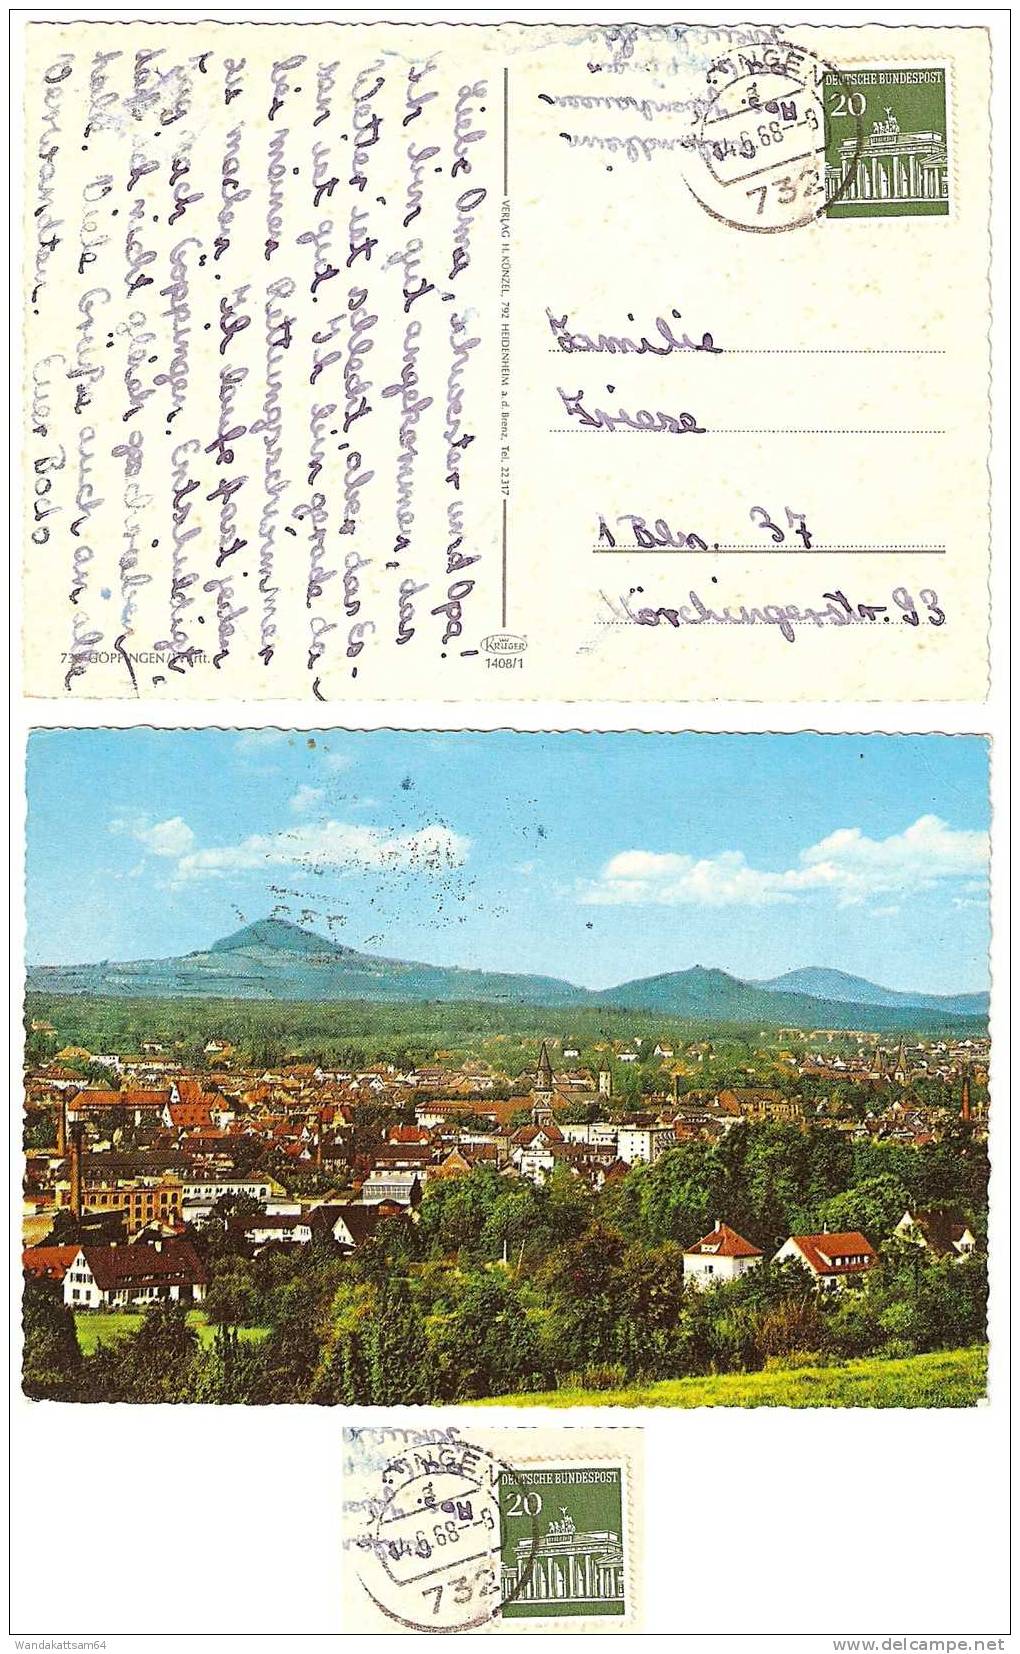 Liebe Oma, Schwester und Opa!
Ich bin gut angekommen, das
Wetter ist schlecht, aber das Es-
sen ist gut. Ich bin gerade da-
bei meinen Rettungsschwimmer
zu machen. Ich laufe fast jeden
Tag nach Göppingen. Entschuldigt,
daß ich nicht gleich geschrieben
habe. Viele Grüße auch an alle
Verwandten. Euer Bodo
732 GÖPPINGEN/Württ.
VERLAG H. KÜNZEL, 792 HEIDENHEIM a. d. Brenz, Tel. 22317
KRÜGER
1408/1
DEUTSCHE BUNDESPOST
20
INGEN
14.9.68--8
732
Familie
Friese
1 Bln. 37
Mörchingerstr. 93
INGEN
14.9.68--8
732
DEUTSCHE BUNDESPOST
20
Wandakattsam64
http://wandakattsam64.delcampe.net